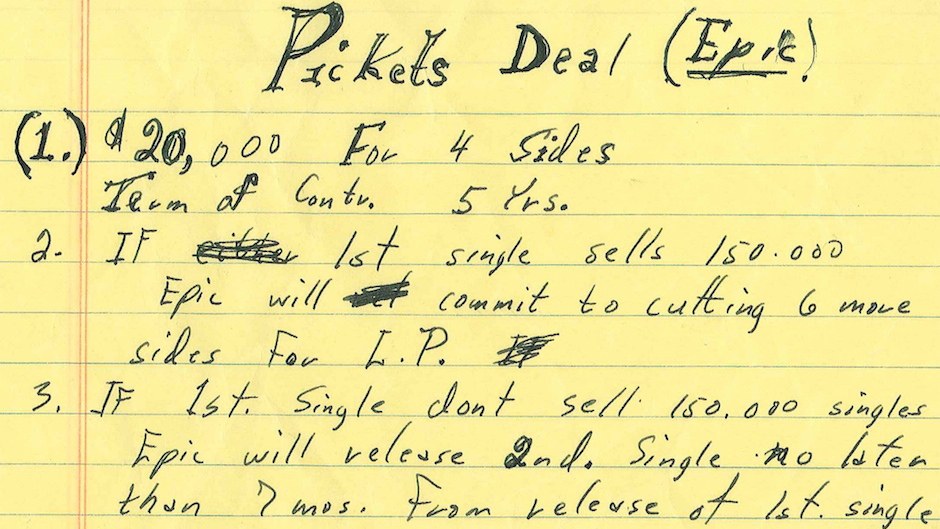 Pickets Deal (Epic)
(1.) $20,000 For 4 Sides
Term of Contr. 5 Yrs.
2. IF either 1st single sells 150.000
Epic will commit to cutting 6 more
sides For L.P. If
3. IF 1st. Single dont sell 150.000 singles
Epic will release 2nd. Single no later
than 7 mos. From release of 1st. single